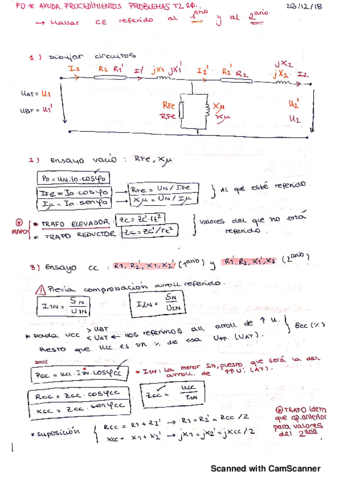 PD * AYUDA PROCEDIMIENTOS PROBLEMAS T2.1Q.
20/12/18
→ Hallar CE referido al 1ario y al 2ario
1) Dibujar circuitos
I1 R1 R1' I1' jX1 jX1' I2' R2' R2 jX2 jX2' I2
UAT = U1
UBT = U1'
RFe
RFe
Xμ
Xμ
U2'
U2
2) Ensayo vacío: RFe, Xμ
P0 = UN.I0.cosφ0
IFe = I0.cosφ0 → RFe = UN/IFe
Iμ = I0.senφ0 → Xμ = UN/Iμ
Al que esté referido
* TRAFO ELEVADOR
* TRAFO REDUCTOR
valores del que no está referido.
3) Ensayo CC: R1, R2', X1, X2' (1ario) y R1', R2, X1', X2 (2ario)
⚠ Previa comprobación arroll. referido.
I1N = SN/U1N
I2N = SN/U2N
* Dada Ucc > UBT
< UAT ← los referimos al arroll de ↑ U.
Puesto que Ucc es un % de esa U (UAT).
εcc (%)
Pcc = Ucc.IN cosφcc
* IN: la menor IN, puesto que será la del arroll. de ↑U (AT).
Rcc = Zcc cosφcc
Xcc = Zcc senφcc
Zcc = Ucc/IN
* Suposición
Rcc = R1 + R2' → R1 = R2' = Rcc/2
Xcc = X1 + X2' → jX1 = jX2' = jXcc/2
TRAFO idem que ap. anterior para valores del 2ario
Scanned with CamScanner